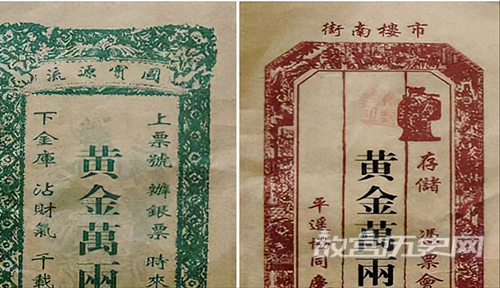 國寳源流
上票號 辦銀票 時來
黄金萬兩
下金庫 沾財氣 千載
市樓南街
存儲 憑票會
黄金萬兩
平遥協同慶
故宫历史网